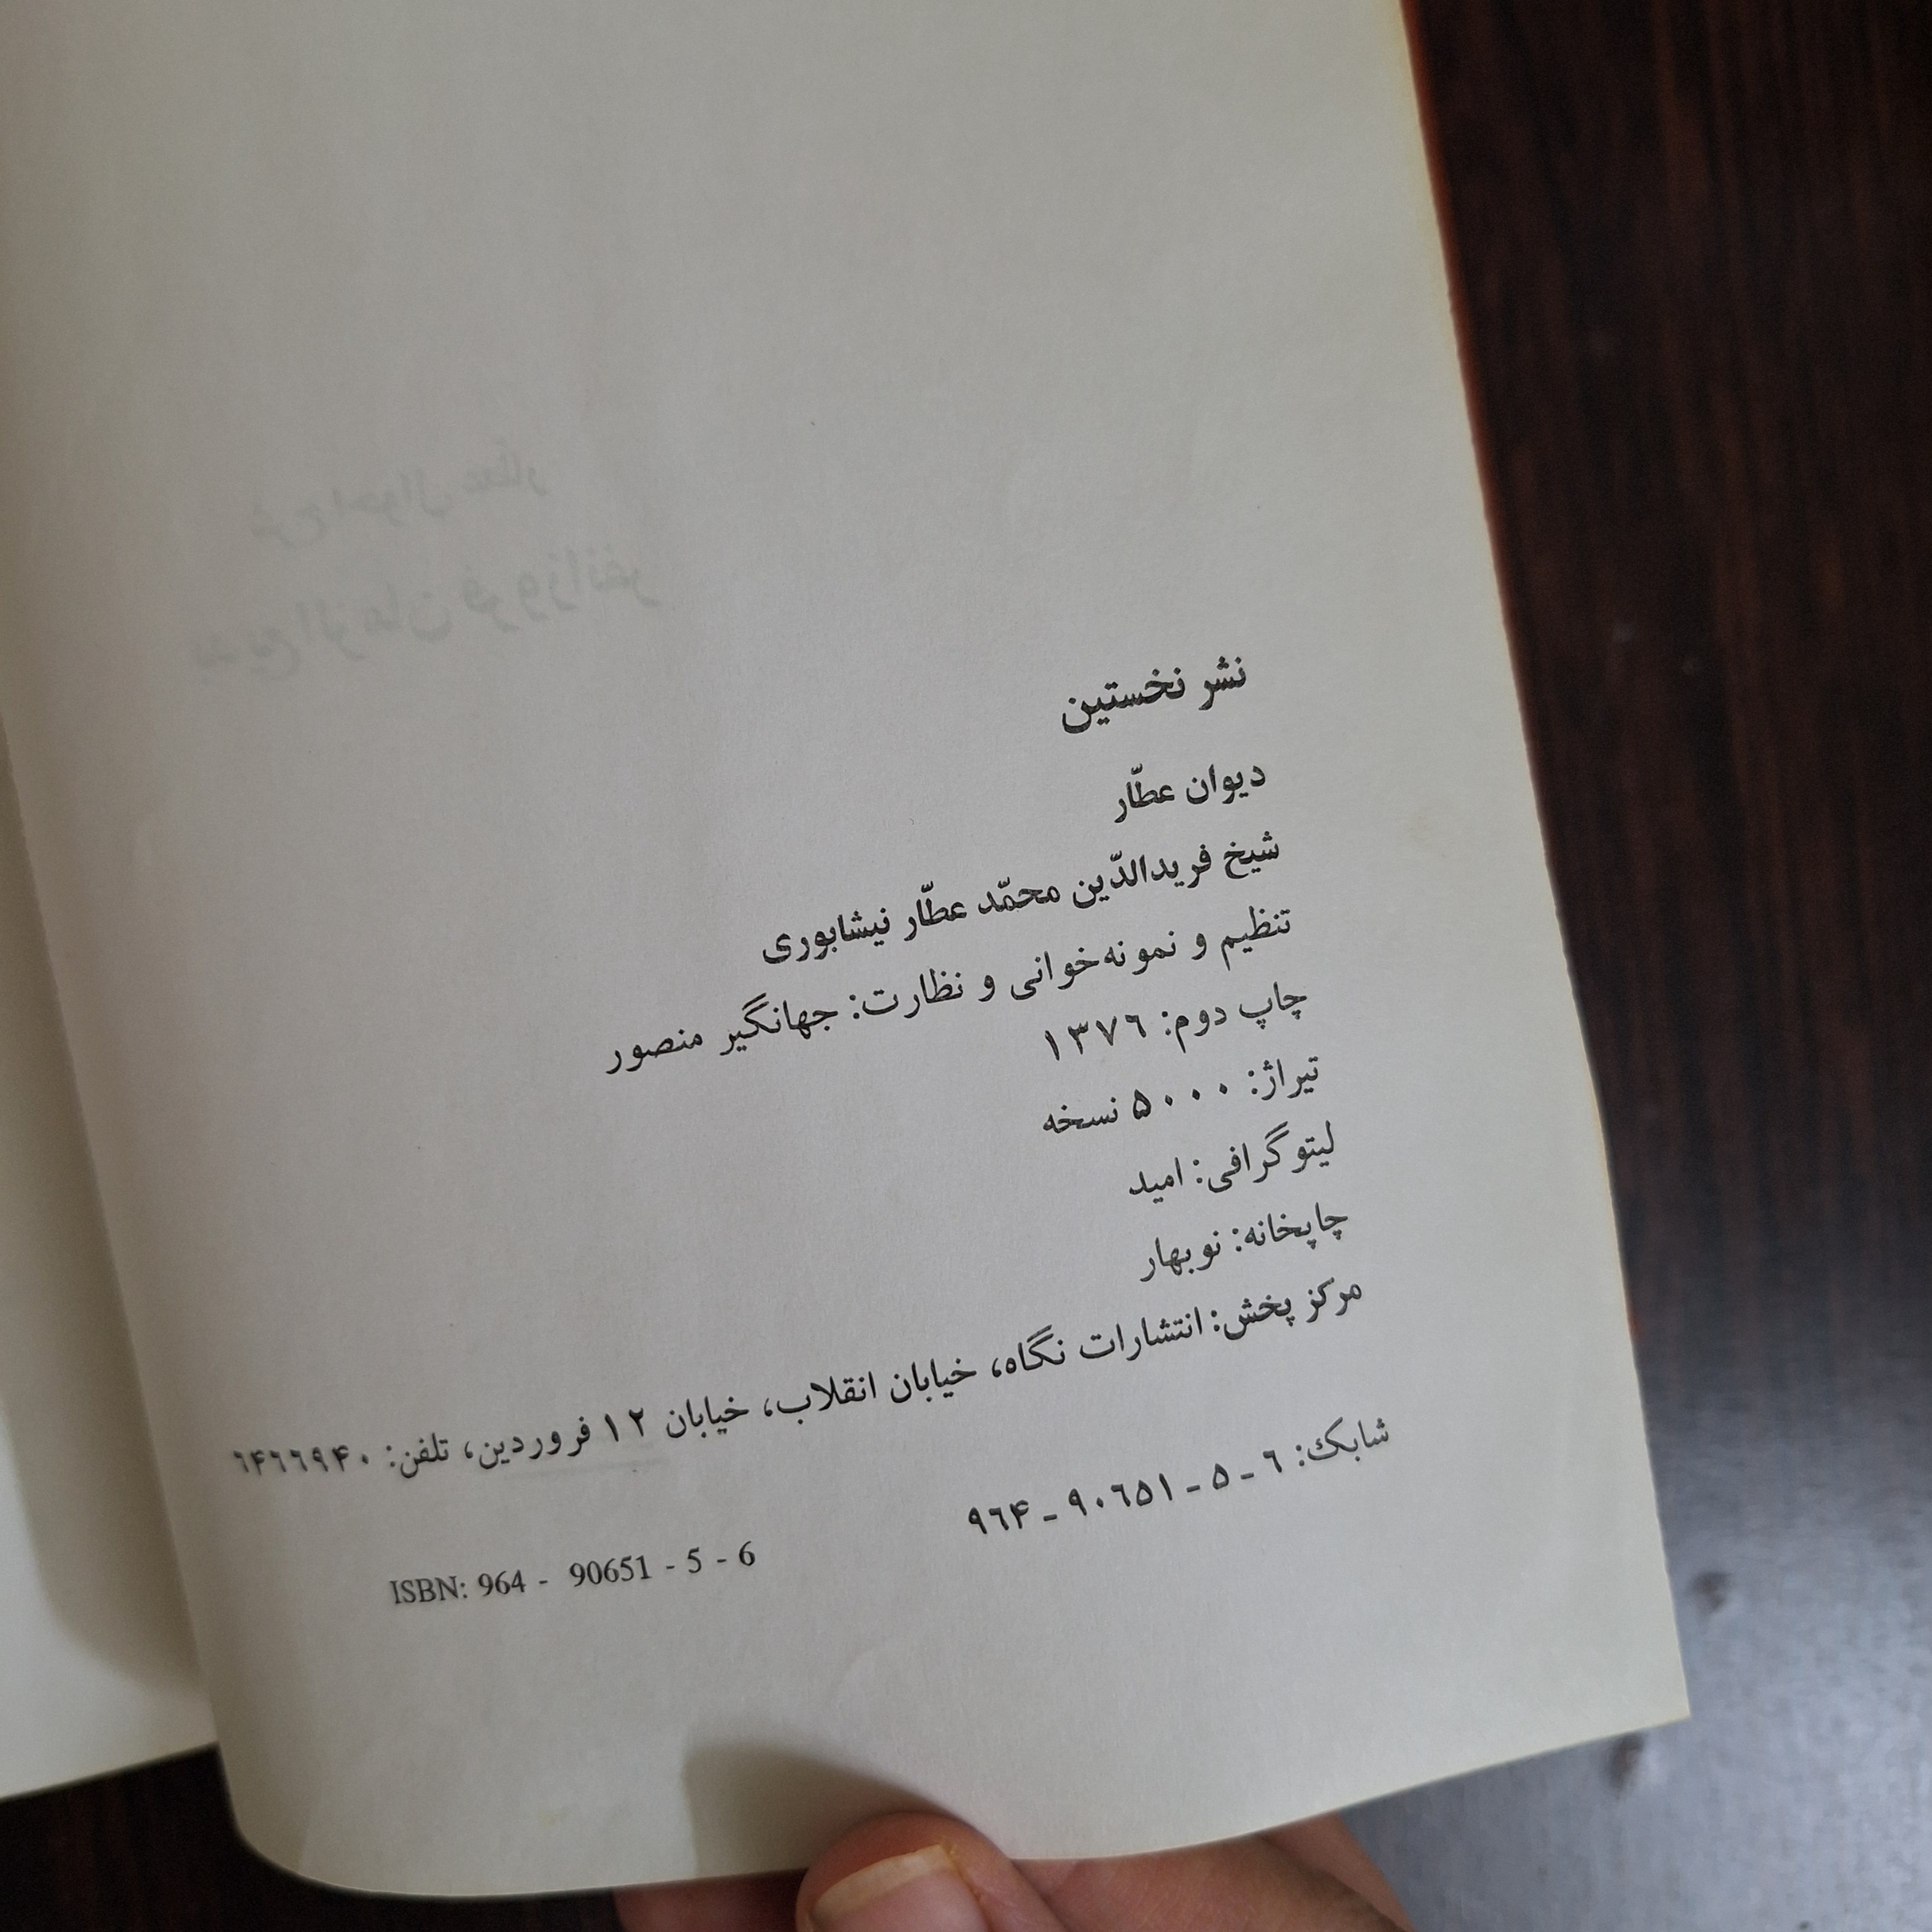 نشر نخستین
دیوان عطّار
شیخ فریدالدّین محمّد عطّار نیشابوری
تنظیم و نمونه‌خوانی و نظارت: جهانگیر منصور
چاپ دوم: ۱۳۷۶
تیراژ: ۵۰۰۰ نسخه
لیتوگرافی: امید
چاپخانه: نوبهار
مرکز پخش: انتشارات نگاه، خیابان انقلاب، خیابان ۱۲ فروردین، تلفن: ۶۴۶۶۹۴۰
شابک: ۶ - ۵ - ۹۰۶۵۱ - ۹۶۴
ISBN: 964 - 90651 - 5 - 6
شرح احوال عطّار
بدیع‌الزمان فروزانفر